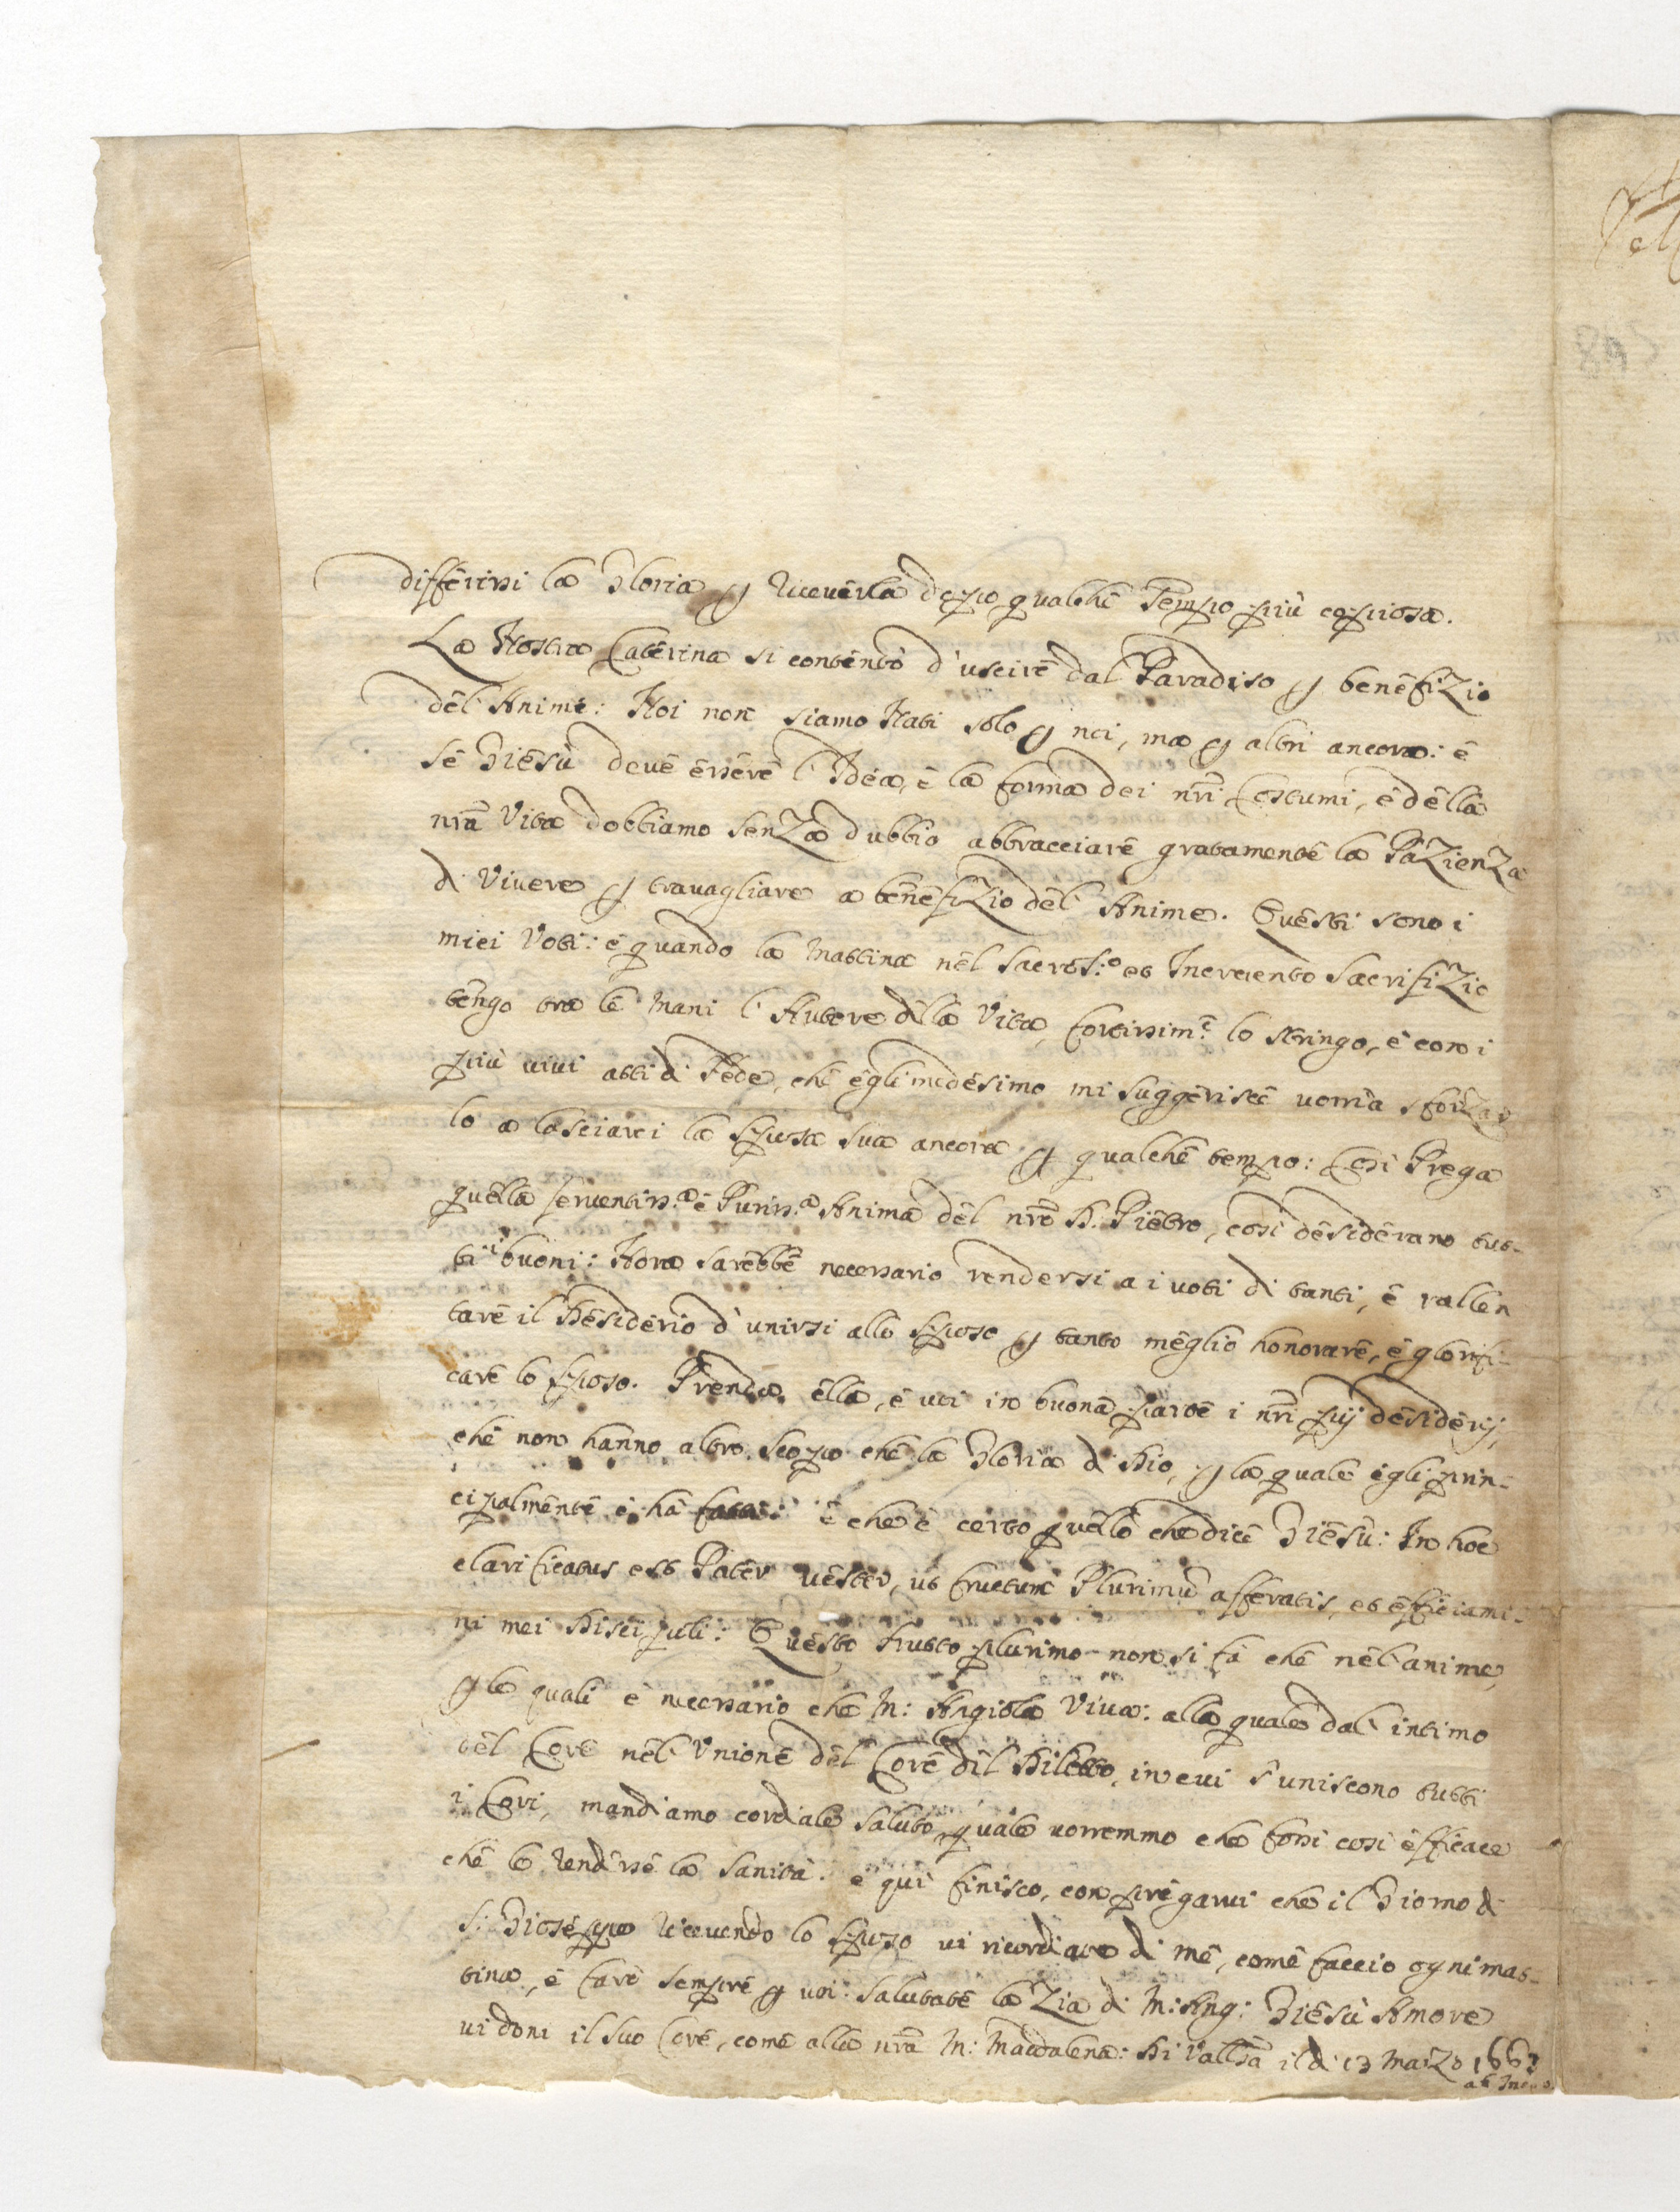 differirsi la Gloria p riceverla dopo qualche Tempo più copiosa.
La Nostra Caterina si contentò d'uscire dal Paradiso p benefiZio
del Anime: Noi non siamo Nati solo p noi, ma p altri ancora: è
se Giesù deve essere l'Idea, è la forma dei nri Costumi, è della
nra Vita dobbiamo senZa dubbio abbracciare gratamente la PaZienZa
di Vivere p travagliare a benefiZio del Anime. Questi sono i
miei Voti: è quando la Mattina nel Sacros:o et Incruento SacrifiZio
tengo tra le Mani l'Autore della Vita, fortissim:e lo stringo, è con i
più vivi atti di Fede, che egli medesimo mi suggerisce vorria sforZar
lo a lasciarci la sposa sua ancora p qualche tempo: Così Prega
quella ferventiss:a è Puriss:a Anima del nro P. Pietro, così desiderano tut-
ti i buoni: Hora sarebbe necessario rendersi a i voti di tanti, è rallen
tare il Desiderio d'unirsi allo sposo p tanto meglio honorare, è glorifi-
care lo sposo. Prenda ella, è voi in buona parte i nri pij desiderij,
che non hanno altro scopo che la Gloria di Dio, p la quale egli prin-
cipalmente ci hà fatti: è che è certo quello che dice Giesù: In hoc
clarificatus est Pater vester, ut fructum Plurimù afferatis, et efficiami-
ni mei Discipuli: Questo frutto plurimo non si fà che nel'anime,
p le quali è necessario che M: Angiola Viva: alla quale dal'intimo
del Core nel'Unione del Core del Diletto, in cui s'uniscono tutti
i Cori, mandiamo cordiale saluto, quale vorremmo che fossi così efficace
che le rendesse la sanità. è qui finisco, con pregarvi che il Giorno di
S: Gioseppe ricevendo lo sposo vi ricordiate di me, come faccio ogni mat-
tina, è farò sempre p voi: salutate la Zia di M: Ang: Giesù Amore
vi doni il suo Core, come alla nra M: Maddalena: Di Vallsa il di 13 MarZo 1663
ab Inc